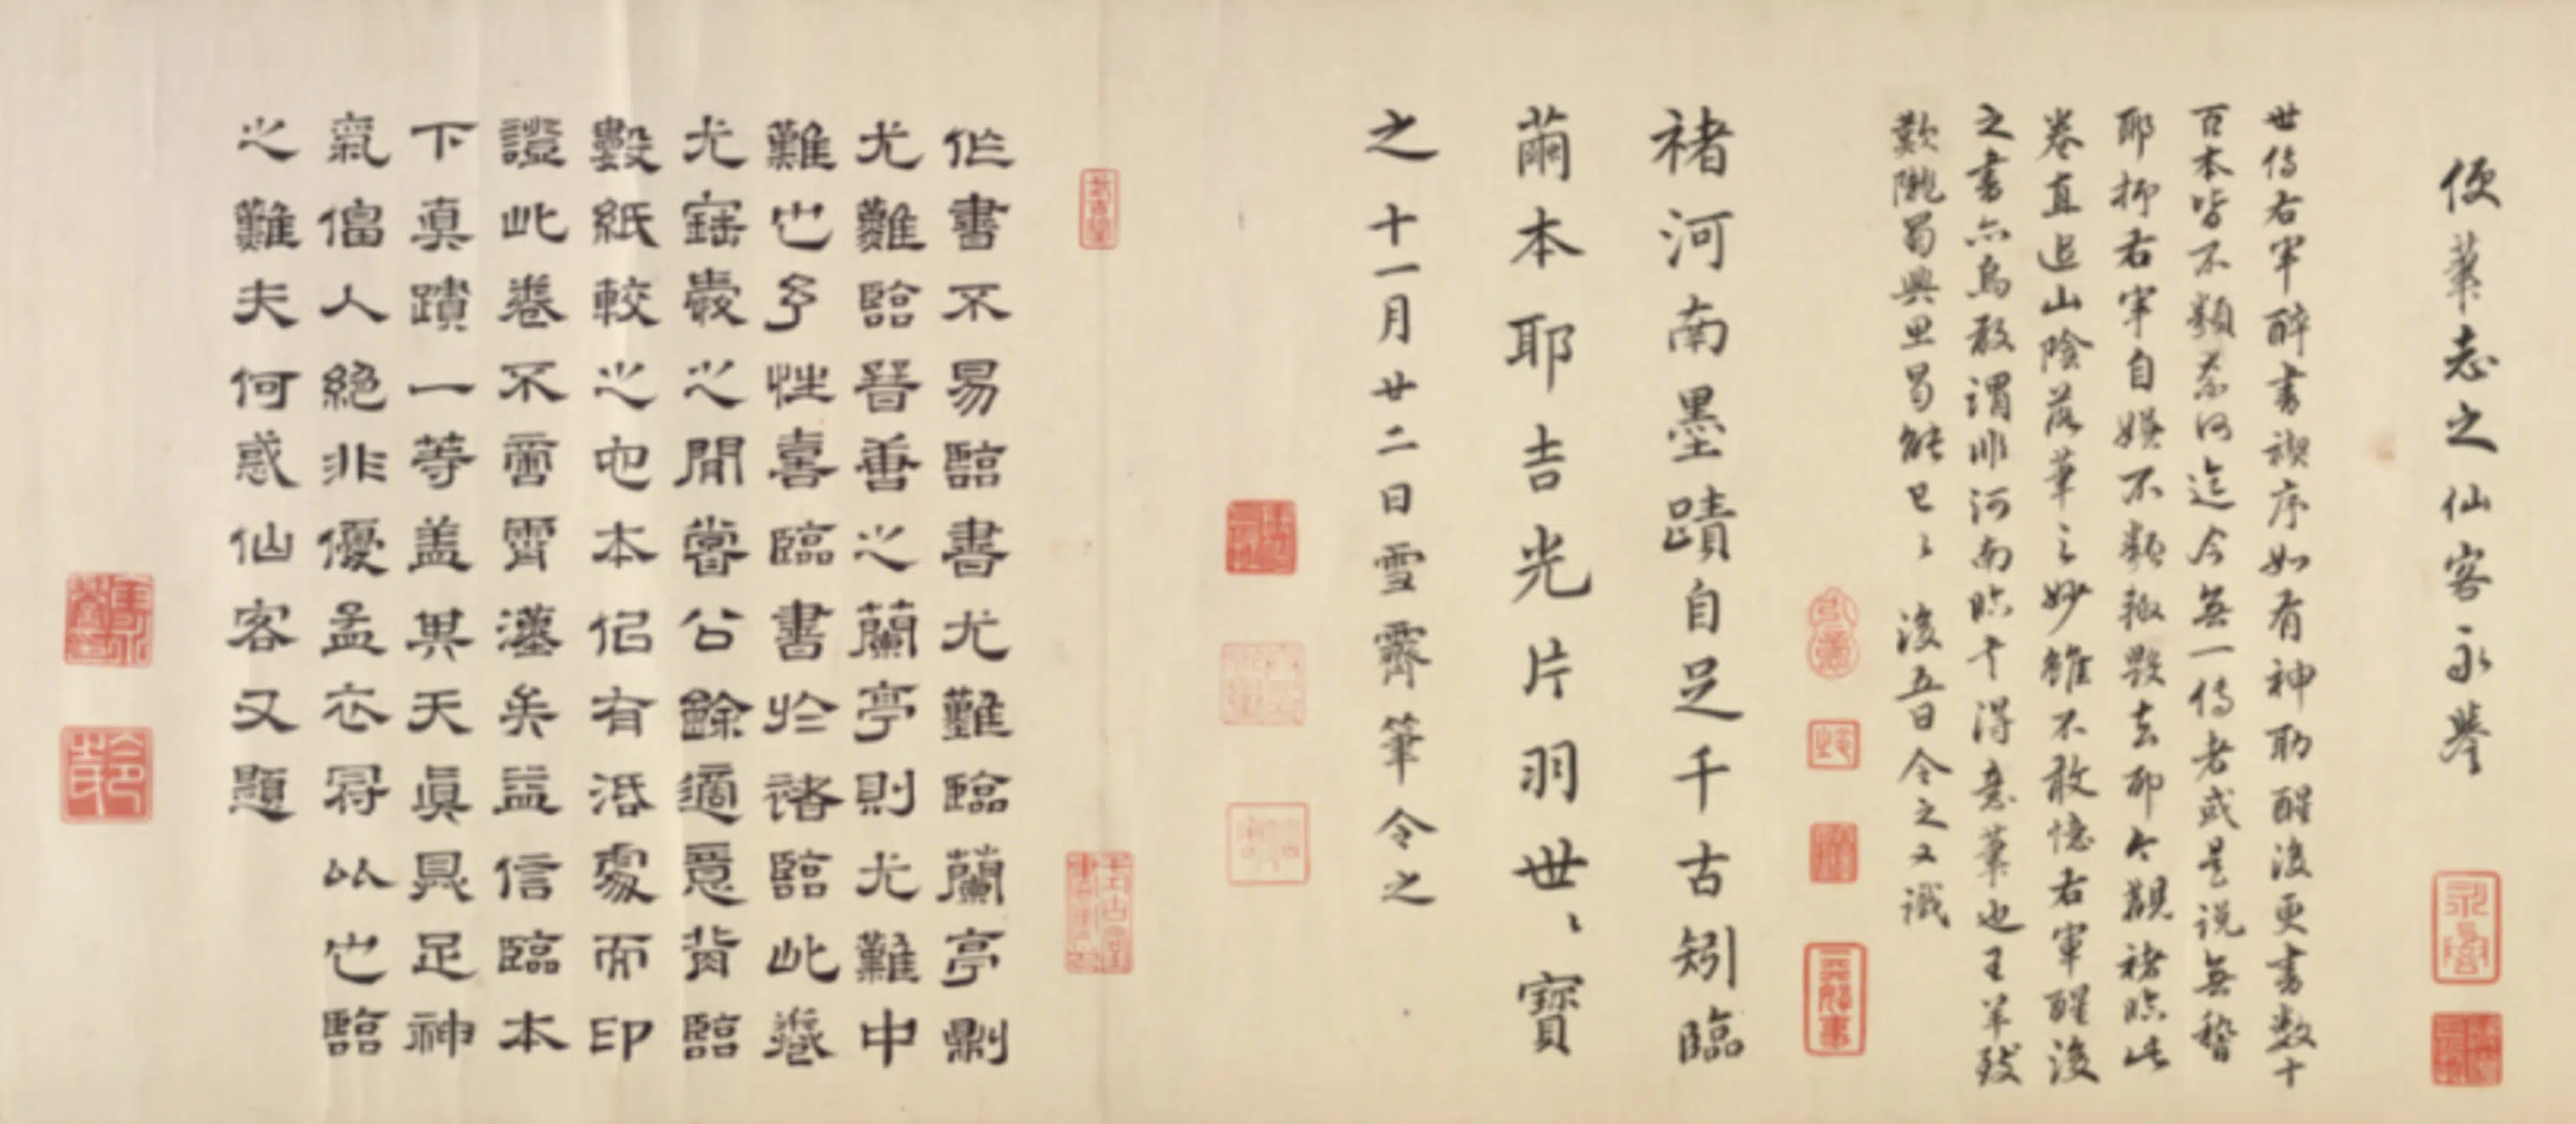 便筆志之仙客永譽
世傳右軍醉書禊序如有神助醒後更書數十
百本皆不類奈何迄今無一傳者或是說無稽
耶抑右軍自嫌不類輒毀去耶今觀褚臨此
卷直追山陰落筆之妙雖不敢憶右軍醒後
之書亦烏敢謂非河南臨十得意筆也王羊致
歎隴蜀興思曷能已已 後五日令之又識
褚河南墨蹟自足千古矧臨
繭本耶吉光片羽世世寶
之十一月廿二日雪霽筆令之
作書不易臨書尤難臨蘭亭則
尤難臨晉善之蘭亭則尤難中
難也予性喜臨書於褚臨此卷
尤寤寐之閒嘗公餘適意背臨
數紙較之他本佀有活處而印
證此卷不啻霄漢矣益信臨本
下真蹟一等盖其天真具足神
氣偪人絕非優孟衣冠以也臨
之難夫何惑仙客又題